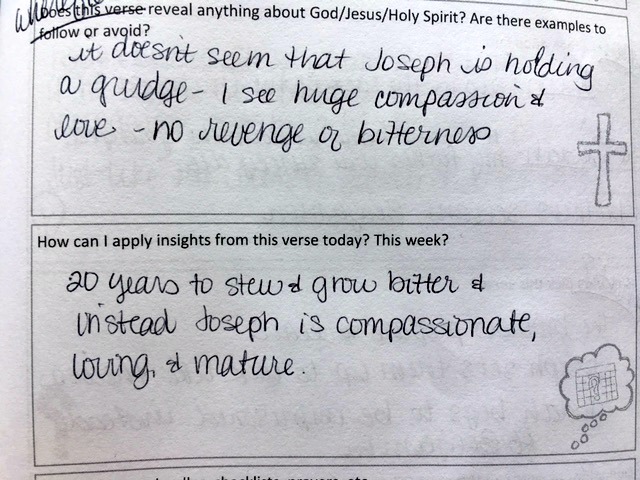 Does this verse reveal anything about God/Jesus/Holy Spirit? Are there examples to
follow or avoid?
it doesn't seem that Joseph is holding
a grudge - I see huge compassion &
love - no revenge or bitterness
How can I apply insights from this verse today? This week?
20 years to stew & grow bitter &
instead Joseph is compassionate,
loving, & mature.